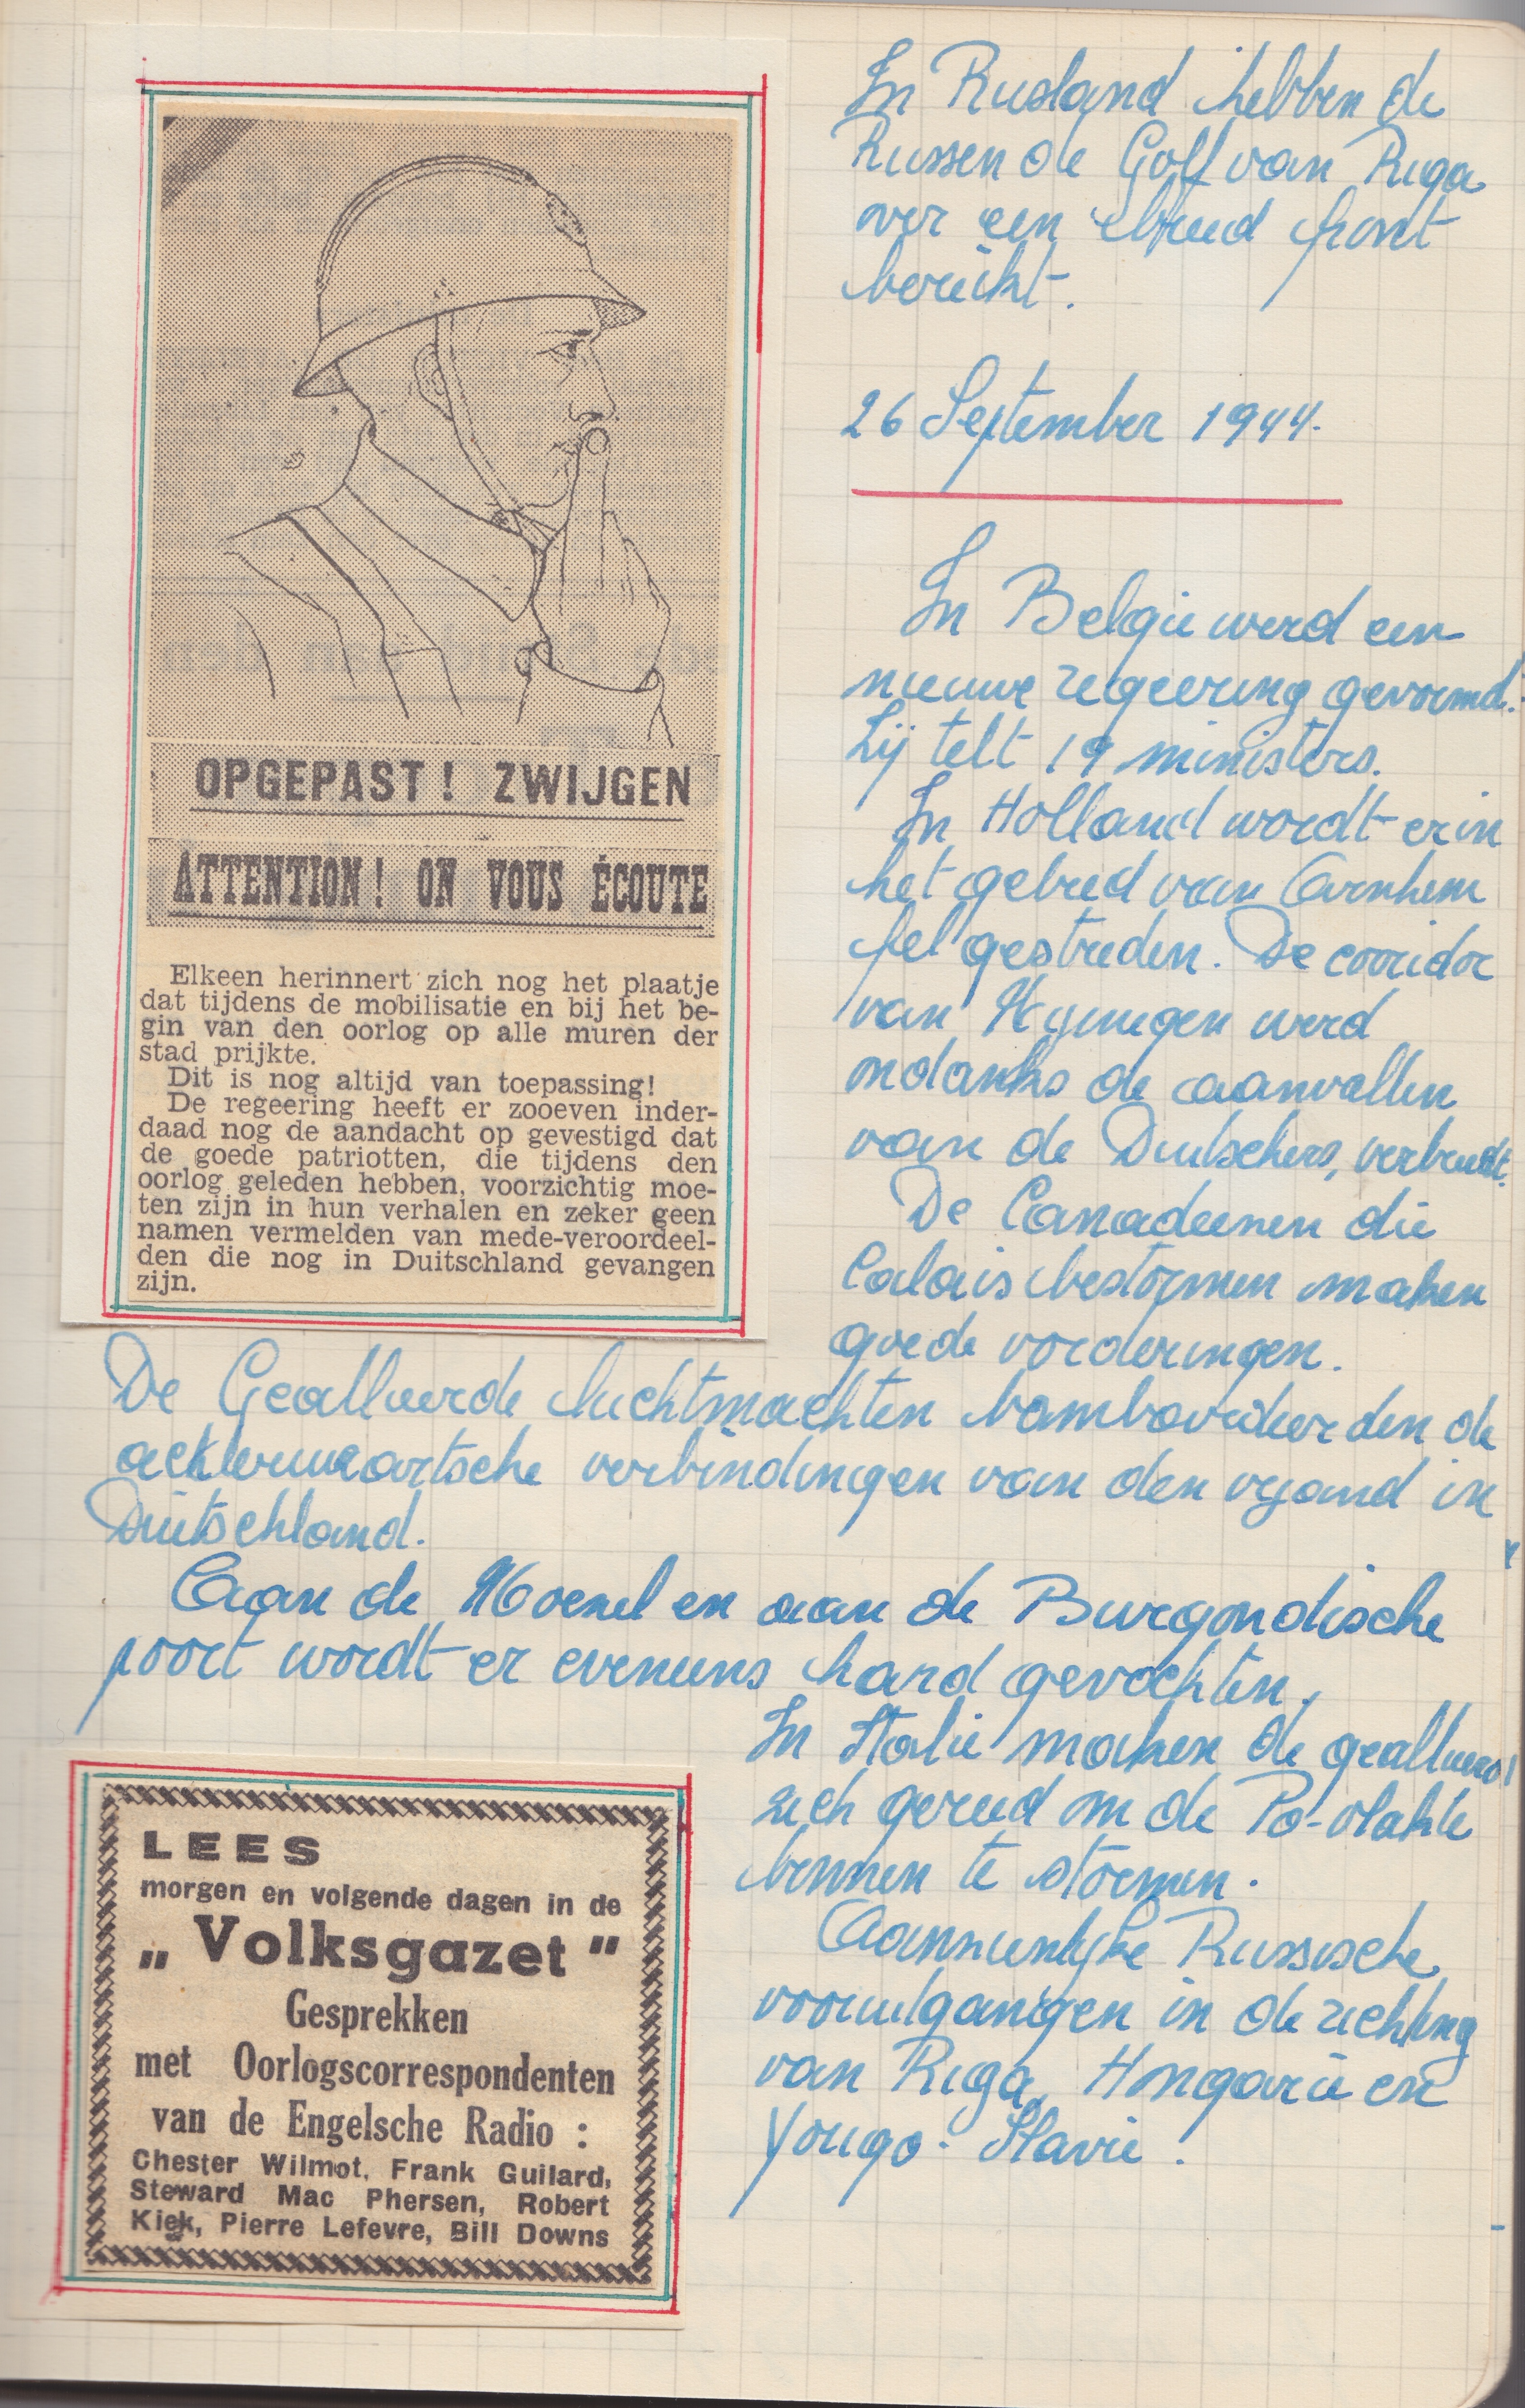 In Rusland hebben de
Russen de Golf van Riga
over een breed front
bereikt.
26 September 1944.
In Belgie werd een
nieuwe regeering gevormd.
Zij telt 19 ministers.
In Holland wordt er in
het gebied van Arnhem
fel gestreden. De corridor
van Nijmegen werd
ondanks de aanvallen
van de Duitschers, verbreedt.
De Canadeezen die
Calais bestormen maken
goede vorderingen.
OPGEPAST! ZWIJGEN
ATTENTION! ON VOUS ÉCOUTE
Elkeen herinnert zich nog het plaatje
dat tijdens de mobilisatie en bij het be-
gin van den oorlog op alle muren der
stad prijkte.
Dit is nog altijd van toepassing!
De regeering heeft er zooeven inder-
daad nog de aandacht op gevestigd dat
de goede patriotten, die tijdens den
oorlog geleden hebben, voorzichtig moe-
ten zijn in hun verhalen en zeker geen
namen vermelden van mede-veroordeel-
den die nog in Duitschland gevangen
zijn.
De Geallieerde luchtmachten bombardeerden de
achterwaartsche verbindingen van den vyand in
Duitschland.
Aan de Moezel en aan de Burgondische
poort wordt er eveneens hard gevochten.
In Italie maken de geallieerd
zich gereed om de Po-vlakte
binnen te stormen.
Aanzienlijke Russische
vooruitgangen in de richting
van Riga, Hongarie en
Yougo-Slavie.
LEES
morgen en volgende dagen in de
„ Volksgazet "
Gesprekken
met Oorlogscorrespondenten
van de Engelsche Radio :
Chester Wilmot, Frank Guilard,
Steward Mac Phersen, Robert
Kiek, Pierre Lefevre, Bill Downs